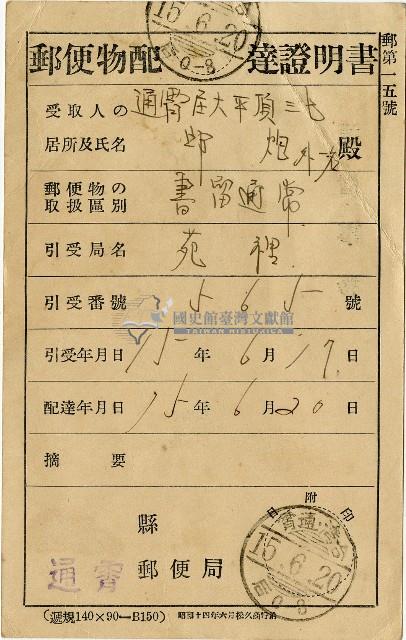 15.6.20
0-8
郵便物配達證明書
郵第一五號
受取人の居所及氏名
通霄庄大平頂三七
邱 炮 外一名
殿
郵便物の取扱區別
書留通常
引受局名
苑裡
引受番號
5 6 5 號
國史館臺灣文獻館
TAIWAN HISTORICA
引受年月日
15年6月17日
配達年月日
15年6月20日
摘要
日附印
縣
通霄 郵便局
15.6.20
0-8
(遞規140×90—B150)
昭和十四年六月松久商行納